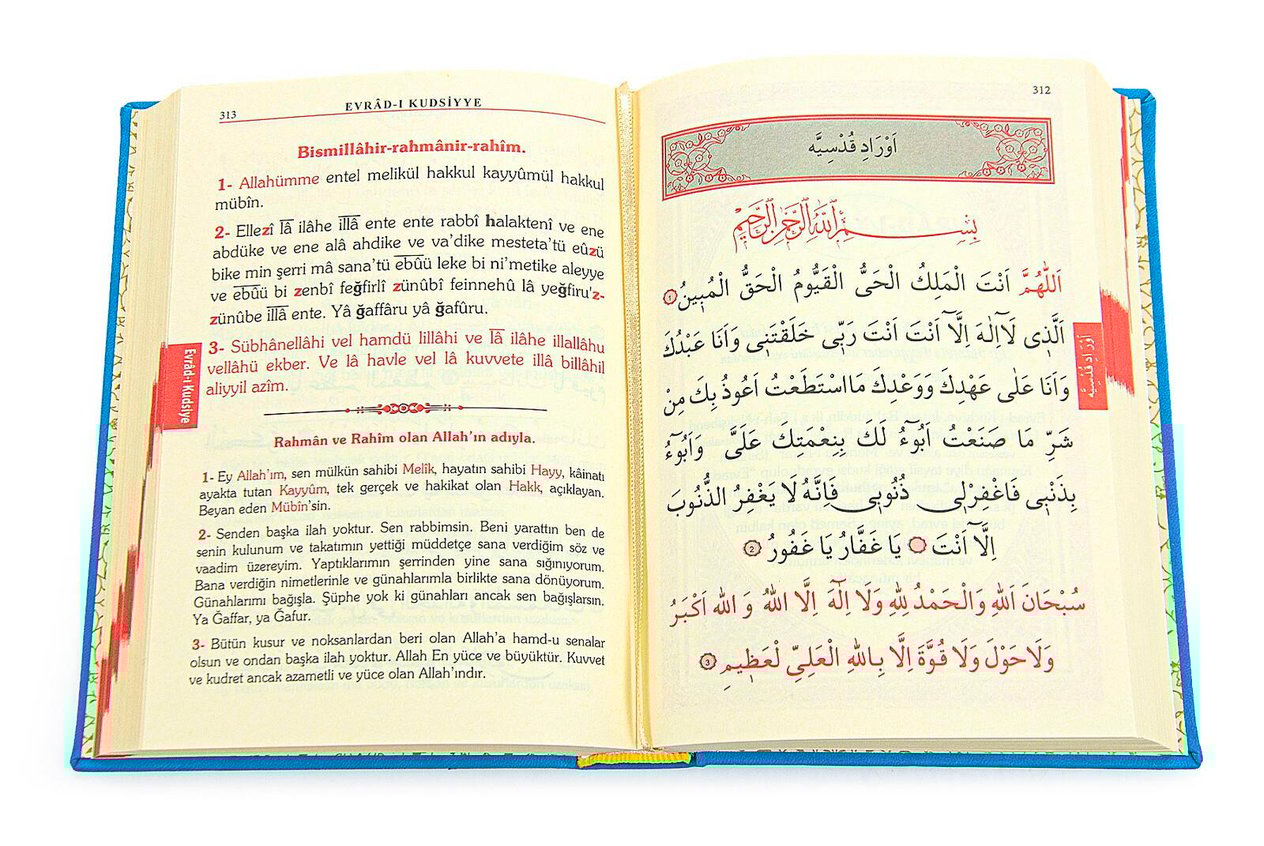 312
اَوْرَادِ قُدْسِيَّه
بِسْمِ اللّٰهِ الرَّحْمٰنِ الرَّحِيمِ
اَللّٰهُمَّ اَنْتَ الْمَلِكُ الْحَىُّ الْقَيُّومُ الْحَقُّ الْمُبِينُ ۱
اَلَّذِى لَآاِلٰهَ اِلَّآ اَنْتَ اَنْتَ رَبِّى خَلَقْتَنِى وَاَنَا عَبْدُكَ
وَاَنَا عَلٰى عَهْدِكَ وَوَعْدِكَ مَااسْتَطَعْتُ اَعُوذُ بِكَ مِنْ
شَرِّ مَا صَنَعْتُ اَبُوءُ لَكَ بِنِعْمَتِكَ عَلَىَّ وَاَبُوءُ
بِذَنْبِى فَاغْفِرْلِى ذُنُوبِى فَاِنَّهُ لَا يَغْفِرُ الذُّنُوبَ
اِلَّآ اَنْتَ يَا غَفَّارُ يَا غَفُورُ ۲
سُبْحَانَ اللّٰهِ وَالْحَمْدُ لِلّٰهِ وَلَا اِلٰهَ اِلَّا اللّٰهُ وَ اللّٰهُ اَكْبَرُ
وَلَا حَوْلَ وَلَا قُوَّةَ اِلَّا بِاللّٰهِ الْعَلِىِّ لْعَظِيمِ ۳
اَوْرَادِ قُدْسِيَّه
313
EVRÂD-I KUDSİYYE
Bismillâhir-rahmânir-rahîm.
1- Allahümme entel melikül hakkul kayyûmül hakkul
mübîn.
2- Ellezî lâ ilâhe illâ ente ente rabbî halaktenî ve ene
abdüke ve ene alâ ahdike ve va’dike mesteta’tü eûzü
bike min şerri mâ sana’tü ebûü leke bi ni’metike aleyye
ve ebûü bi zenbî feğfirlî zünûbî feinnehû lâ yeğfiru'z-
zünûbe illâ ente. Yâ ğaffâru yâ ğafûru.
3- Sübhânellâhi vel hamdü lillâhi ve lâ ilâhe illallâhu
vellâhü ekber. Ve lâ havle vel lâ kuvvete illâ billâhil
aliyyil azîm.
Rahmân ve Rahîm olan Allah’ın adıyla.
1- Ey Allah’ım, sen mülkün sahibi Melîk, hayatın sahibi Hayy, kâinatı
ayakta tutan Kayyûm, tek gerçek ve hakikat olan Hakk, açıklayan.
Beyan eden Mübîn’sin.
2- Senden başka ilah yoktur. Sen rabbimsin. Beni yarattın ben de
senin kulunum ve takatımın yettiği müddetçe sana verdiğim söz ve
vaadim üzereyim. Yaptıklarımın şerrinden yine sana sığınıyorum.
Bana verdiğin nimetlerinle ve günahlarımla birlikte sana dönüyorum.
Günahlarımı bağışla. Şüphe yok ki günahları ancak sen bağışlarsın.
Ya Ğaffar, ya Ğafur.
3- Bütün kusur ve noksanlardan beri olan Allah’a hamd-u senalar
olsun ve ondan başka ilah yoktur. Allah En yüce ve büyüktür. Kuvvet
ve kudret ancak azametli ve yüce olan Allah’ındır.
Evrâd-ı Kudsiye